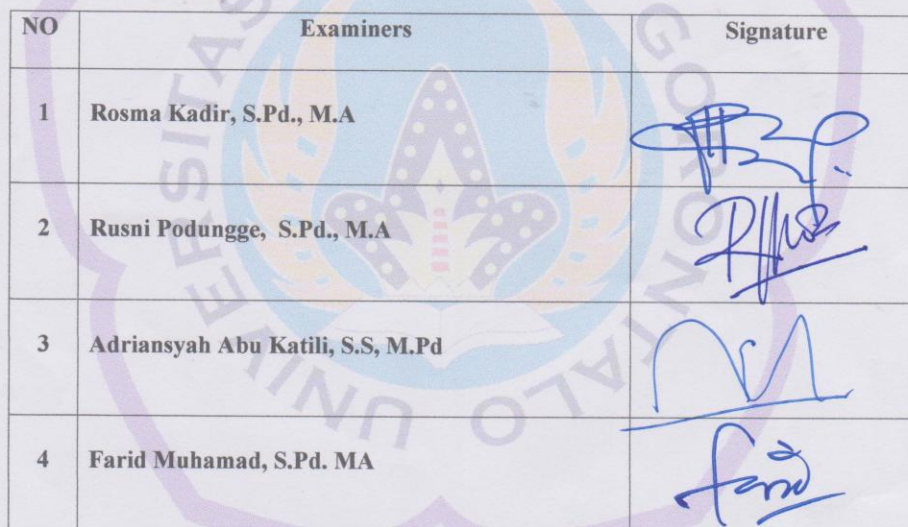 NO Examiners Signature
1 Rosma Kadir, S.Pd., M.A
2 Rusni Podungge, S.Pd., M.A
3 Adriansyah Abu Katili, S.S, M.Pd
4 Farid Muhamad, S.Pd. MA
Farid
UNIVERSITAS GORONTALO